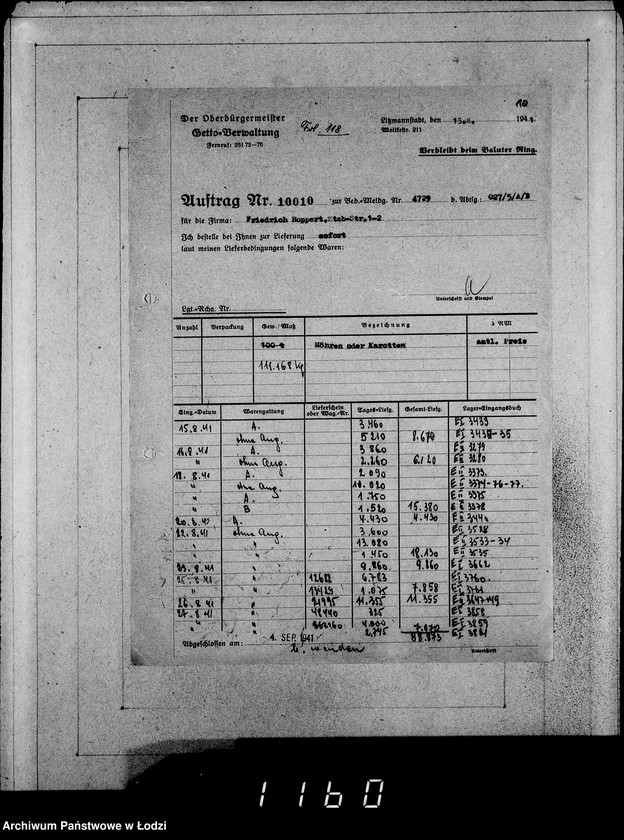 10
Der Oberbürgermeister
Getto-Verwaltung
Fernruf: 25172-76
Fol. 118
Litzmannstadt, den 15.8. 1941.
Moltkestr. 211
Verbleibt beim Baluter Ring.
Auftrag Nr. 10010 zur Bed.-Meldg. Nr. 4729 d. Abtlg.: 027/5/A/B
für die Firma: Friedrich Hoppert, Stab-Str. 1-2
Ich bestelle bei Ihnen zur Lieferung sofort
laut meinen Lieferbedingungen folgende Waren:
Unterschrift und Stempel
Lgt.-Rchn. Nr.
Anzahl Verpackung Gew./Maß Bezeichnung à RM
100 t Möhren oder Karotten amtl. Preis
111.168 kg
Eing.-Datum Warengattung Lieferschein oder Wag.-Nr. Tages-Liefg. Gesamt-Liefg. Lager-Eingangsbuch
15.8.41 A. 3.460 EI 3433
ohne Ang. 5210 8.670 EI 3434-35
16.8.41 A. 3860 3279
" ohne Ang. 2.260 6.120 3280
18.8.41 A. 2.090 3373.
" ohne Ang. 10.020 3374-76-77.
" A. 1.750 3375
" B 1.520 15.380 3378
20.8.41 A. 4.430 4.430 3440
22.8.41 ohne Ang. 3.600 3528
" " 13.080 3533-34
" " 1.450 18.130 3535
23.8.41 " 9.860. 9.860 3662
25.8.41 " 6.783 3760.
" " 1.075 7.858
26.8.41 " 11.355 11.355
27.8.41 " 48440 325 3858
" " 4.000 3859
" 2.745 7.070
88.873
Abgeschlossen am: 4. SEP. 1941
Unterschrift
1160
Archiwum Państwowe w Łodzi